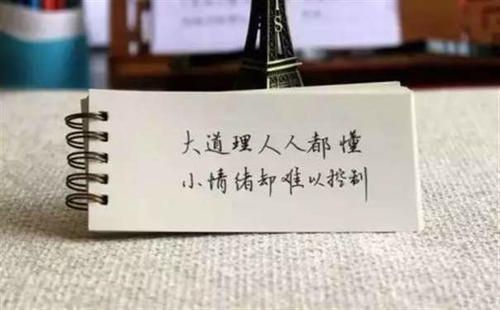 大道理人人都懂
小情绪却难以控制
IS